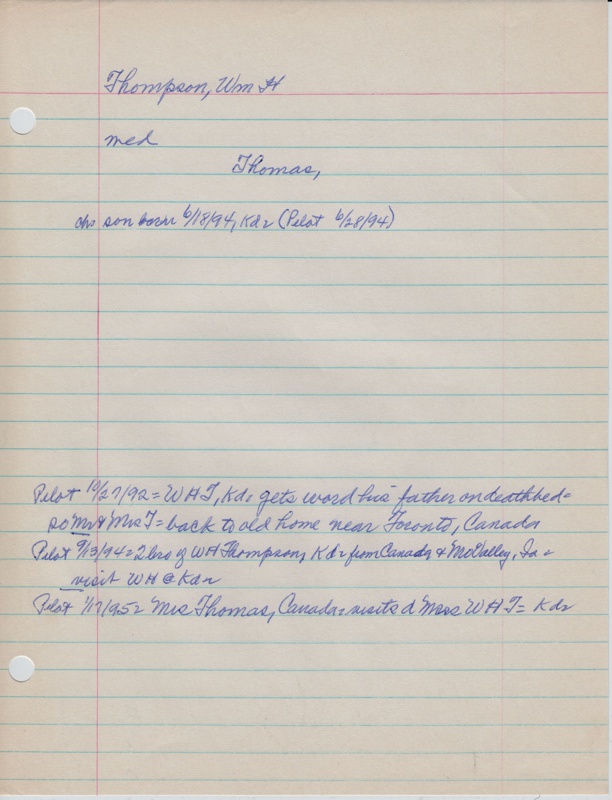 Thompson, Wm H
med
Thomas,
ch: son born 6/18/94, Kdr (Pilot 6/28/94)
Pilot 10/27/92 = W H T, Kdr gets word his father on deathbed =
so Mr & Mrs T = back to old home near Toronto, Canada
Pilot 9/13/94 = 2 bro of WH Thompson, Kdr from Canada & Mo Valley, Ia =
visit WH @ Kdr
Pilot 1/17/95 = Mrs Thomas, Canada = visits d Mrs W H T = Kdr